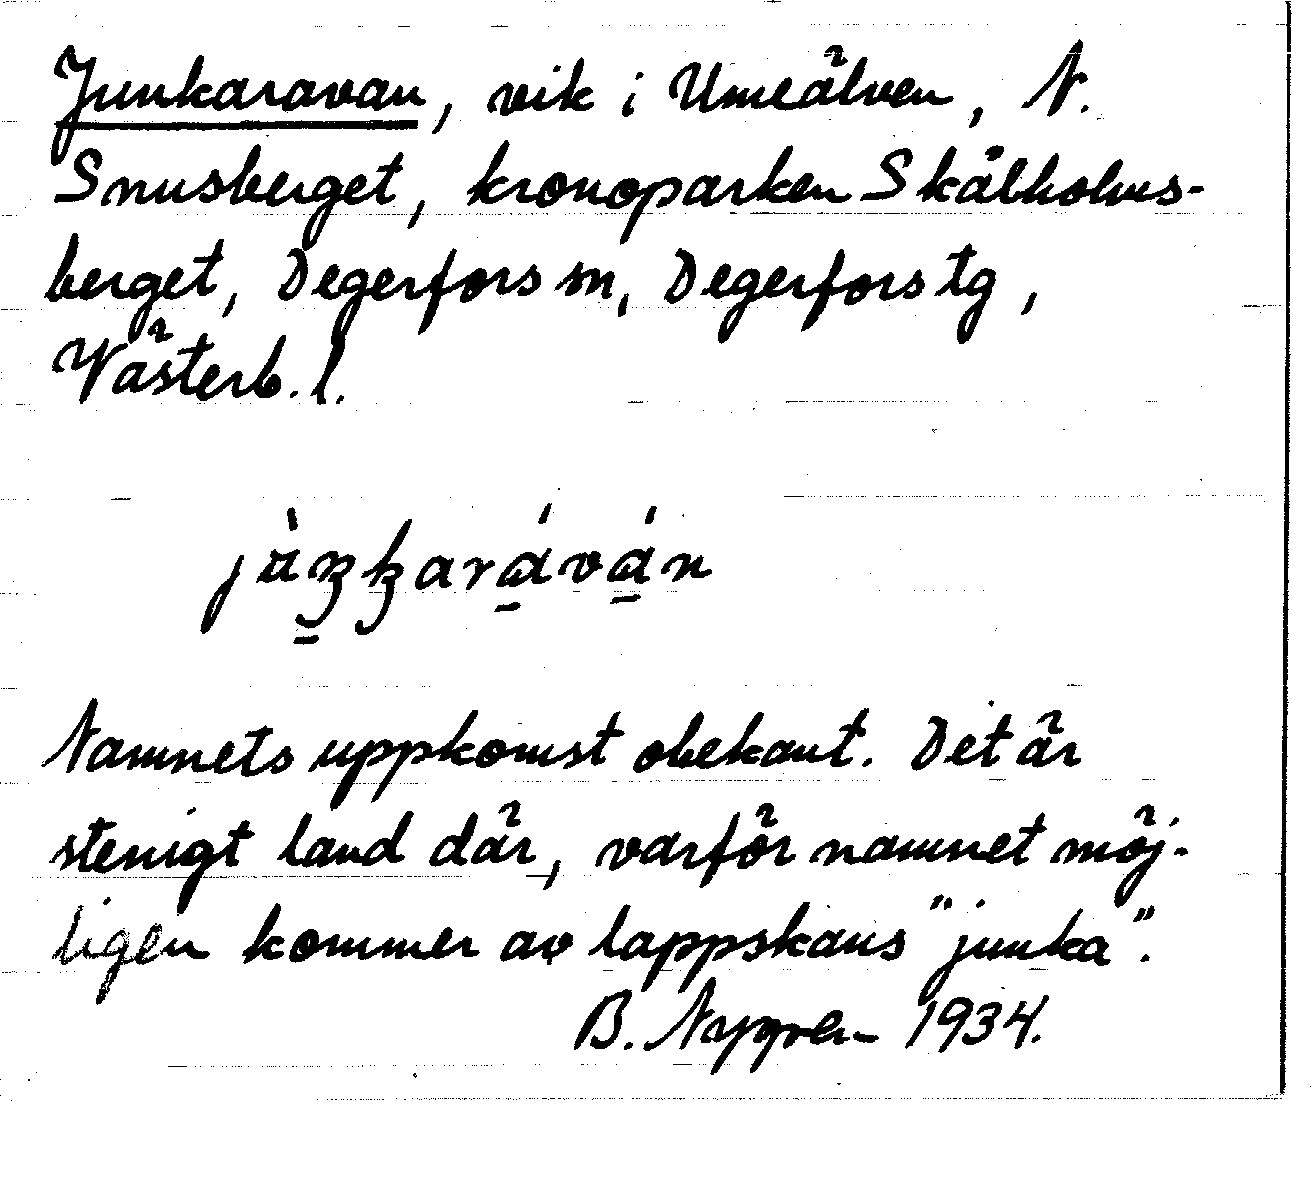 Junkaravan, vik i Umeälven, N.
Snusberget, kronoparken Skålholms-
berget, Degerfors sn, Degerfors tg,
Västerb. l.
Namnets uppkomst obekant. Det är
stenigt land där, varför namnet möj-
ligen kommer av lappskans "junka".
B. Nygren 1934.